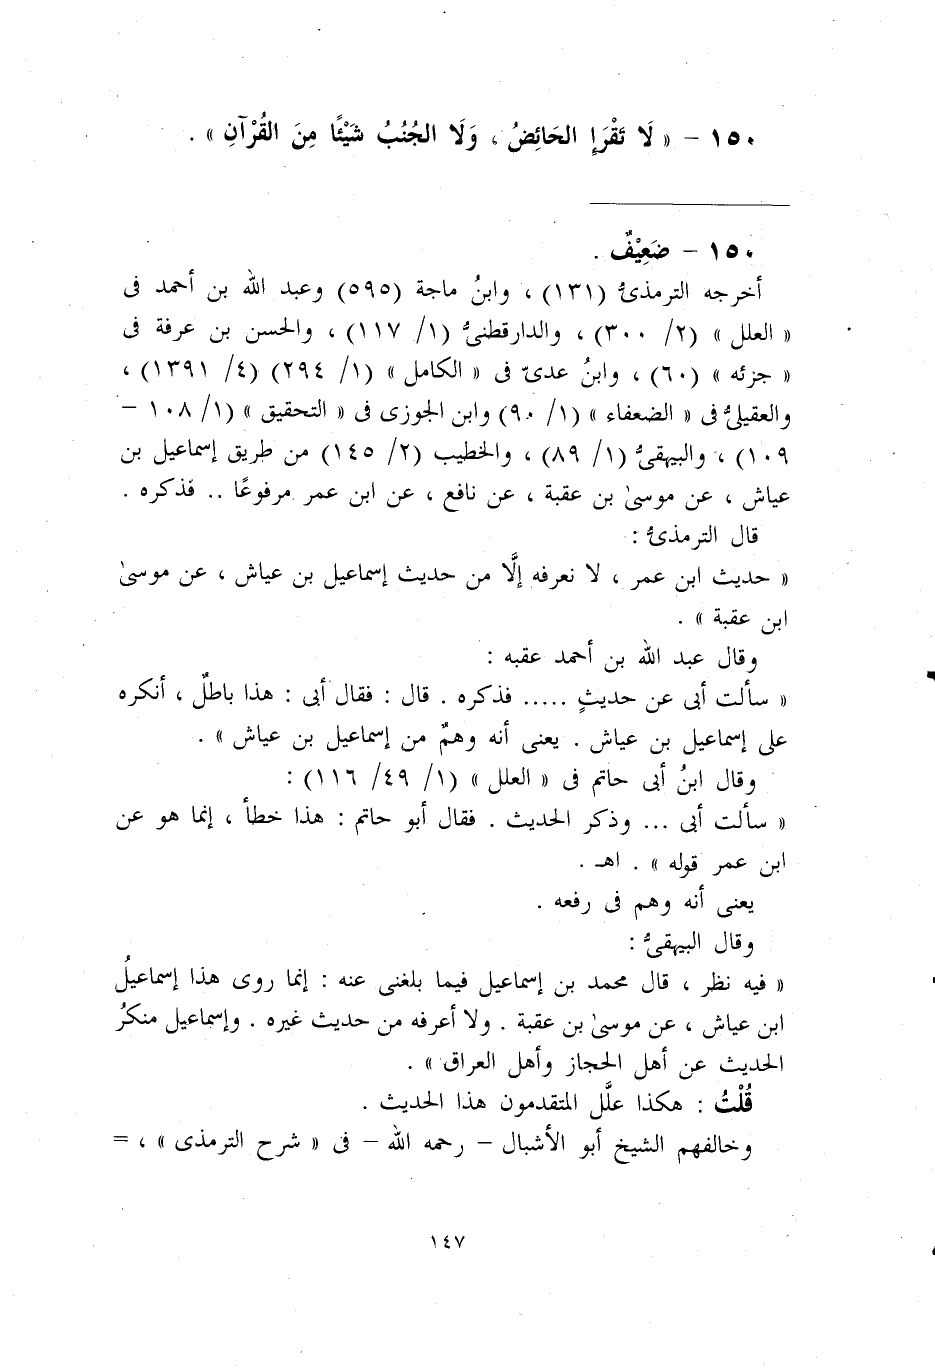 ١٥٠ – « لَا تَقْرَإِ الحَائِضُ ، وَلَا الجُنُبُ شَيْئًا مِنَ القُرْآنِ » .
١٥٠ – ضَعِيْفٌ .
أخرجه الترمذىُّ (١٣١) ، وابنُ ماجة (٥٩٥) وعبد الله بن أحمد فى
« العلل » (٢/ ٣٠٠) ، والدارقطنىُّ (١/ ١١٧) ، والحسن بن عرفة فى
« جزئه » (٦٠) ، وابنُ عدىّ فى « الكامل » (١/ ٢٩٤) (٤/ ١٣٩١) ،
والعقيلىُّ فى « الضعفاء » (١/ ٩٠) وابن الجوزى فى « التحقيق » (١/ ١٠٨ –
١٠٩) ، والبيهقىُّ (١/ ٨٩) ، والخطيب (٢/ ١٤٥) من طريق إسماعيل بن
عياش ، عن موسىٰ بن عقبة ، عن نافع ، عن ابن عمر مرفوعًا .. فذكره .
قال الترمذىُّ :
« حديث ابن عمر ، لا نعرفه إلَّا من حديث إسماعيل بن عياش ، عن موسىٰ
ابن عقبة » .
وقال عبد الله بن أحمد عقبه :
« سألت أبى عن حديثٍ ..... فذكره . قال : فقال أبى : هذا باطلٌ ، أنكره
على إسماعيل بن عياش . يعنى أنه وهمٌ من إسماعيل بن عياش » .
وقال ابنُ أبى حاتم فى « العلل » (١/ ٤٩/ ١١٦) :
« سألت أبى ... وذكر الحديث . فقال أبو حاتم : هذا خطأ ، إنما هو عن
ابن عمر قوله » . اهـ .
يعنى أنه وهم فى رفعه .
وقال البيهقىُّ :
« فيه نظر ، قال محمد بن إسماعيل فيما بلغنى عنه : إنما روى هذا إسماعيلُ
ابن عياش ، عن موسىٰ بن عقبة . ولا أعرفه من حديث غيره . وإسماعيل منكرُ
الحديث عن أهل الحجاز وأهل العراق » .
قُلْتُ : هكذا علَّل المتقدمون هذا الحديث .
وخالفهم الشيخ أبو الأشبال – رحمه الله – فى « شرح الترمذى » ، =
١٤٧